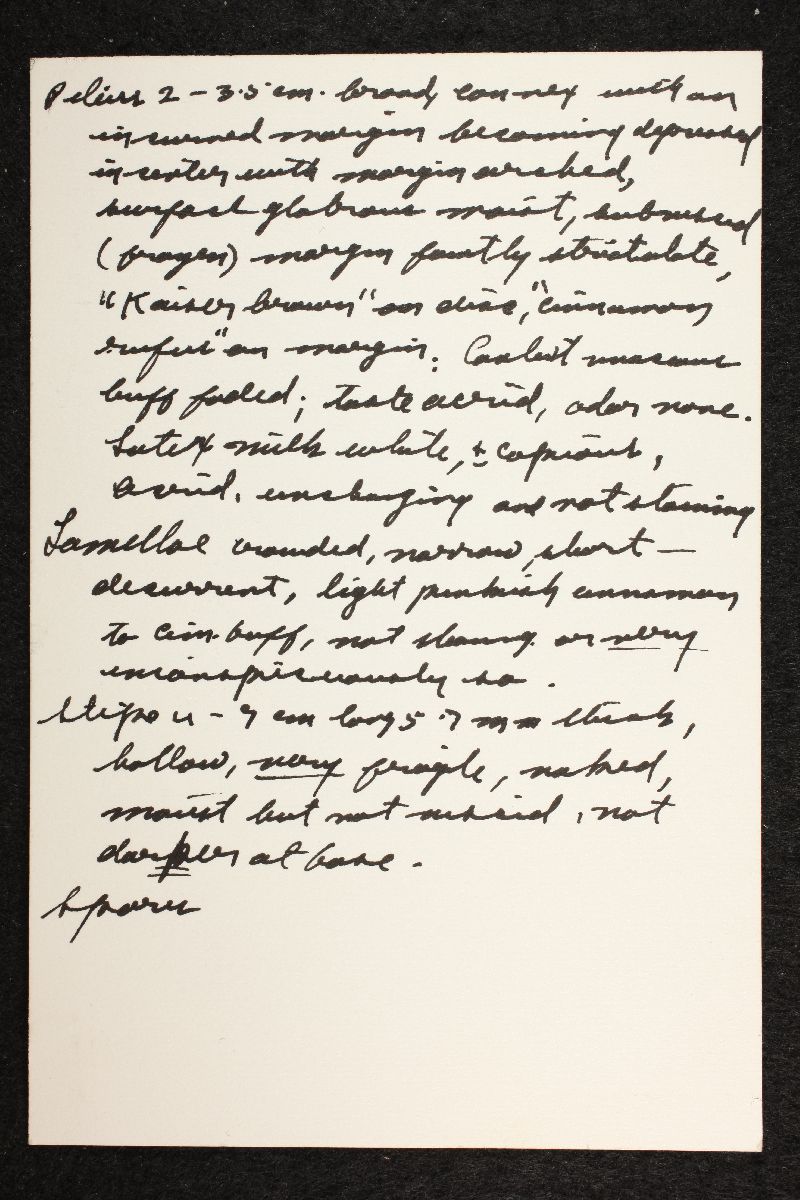 Pileus 2 - 3.5 cm. broad, convex with an
incurved margin becoming depressed
in center with margin arched,
surface glabrous moist, subviscid
(frozen) margin faintly striatulate,
"Kaiser brown" on disc, "cinnamon
rufus" on margin. Context vinaceous
buff faded; taste acrid, odor none.
Latex milk white, ± copious,
acrid, unchanging and not staining
Lamellae crowded, narrow, short —
decurrent, light pinkish cinnamon
to cin. buff, not staing. or very
inconspicuously so.
Stipe - 7 cm long 5-7 mm thick,
hollow, very fragile, naked,
moist but not viscid, not
darker at base.
Spores